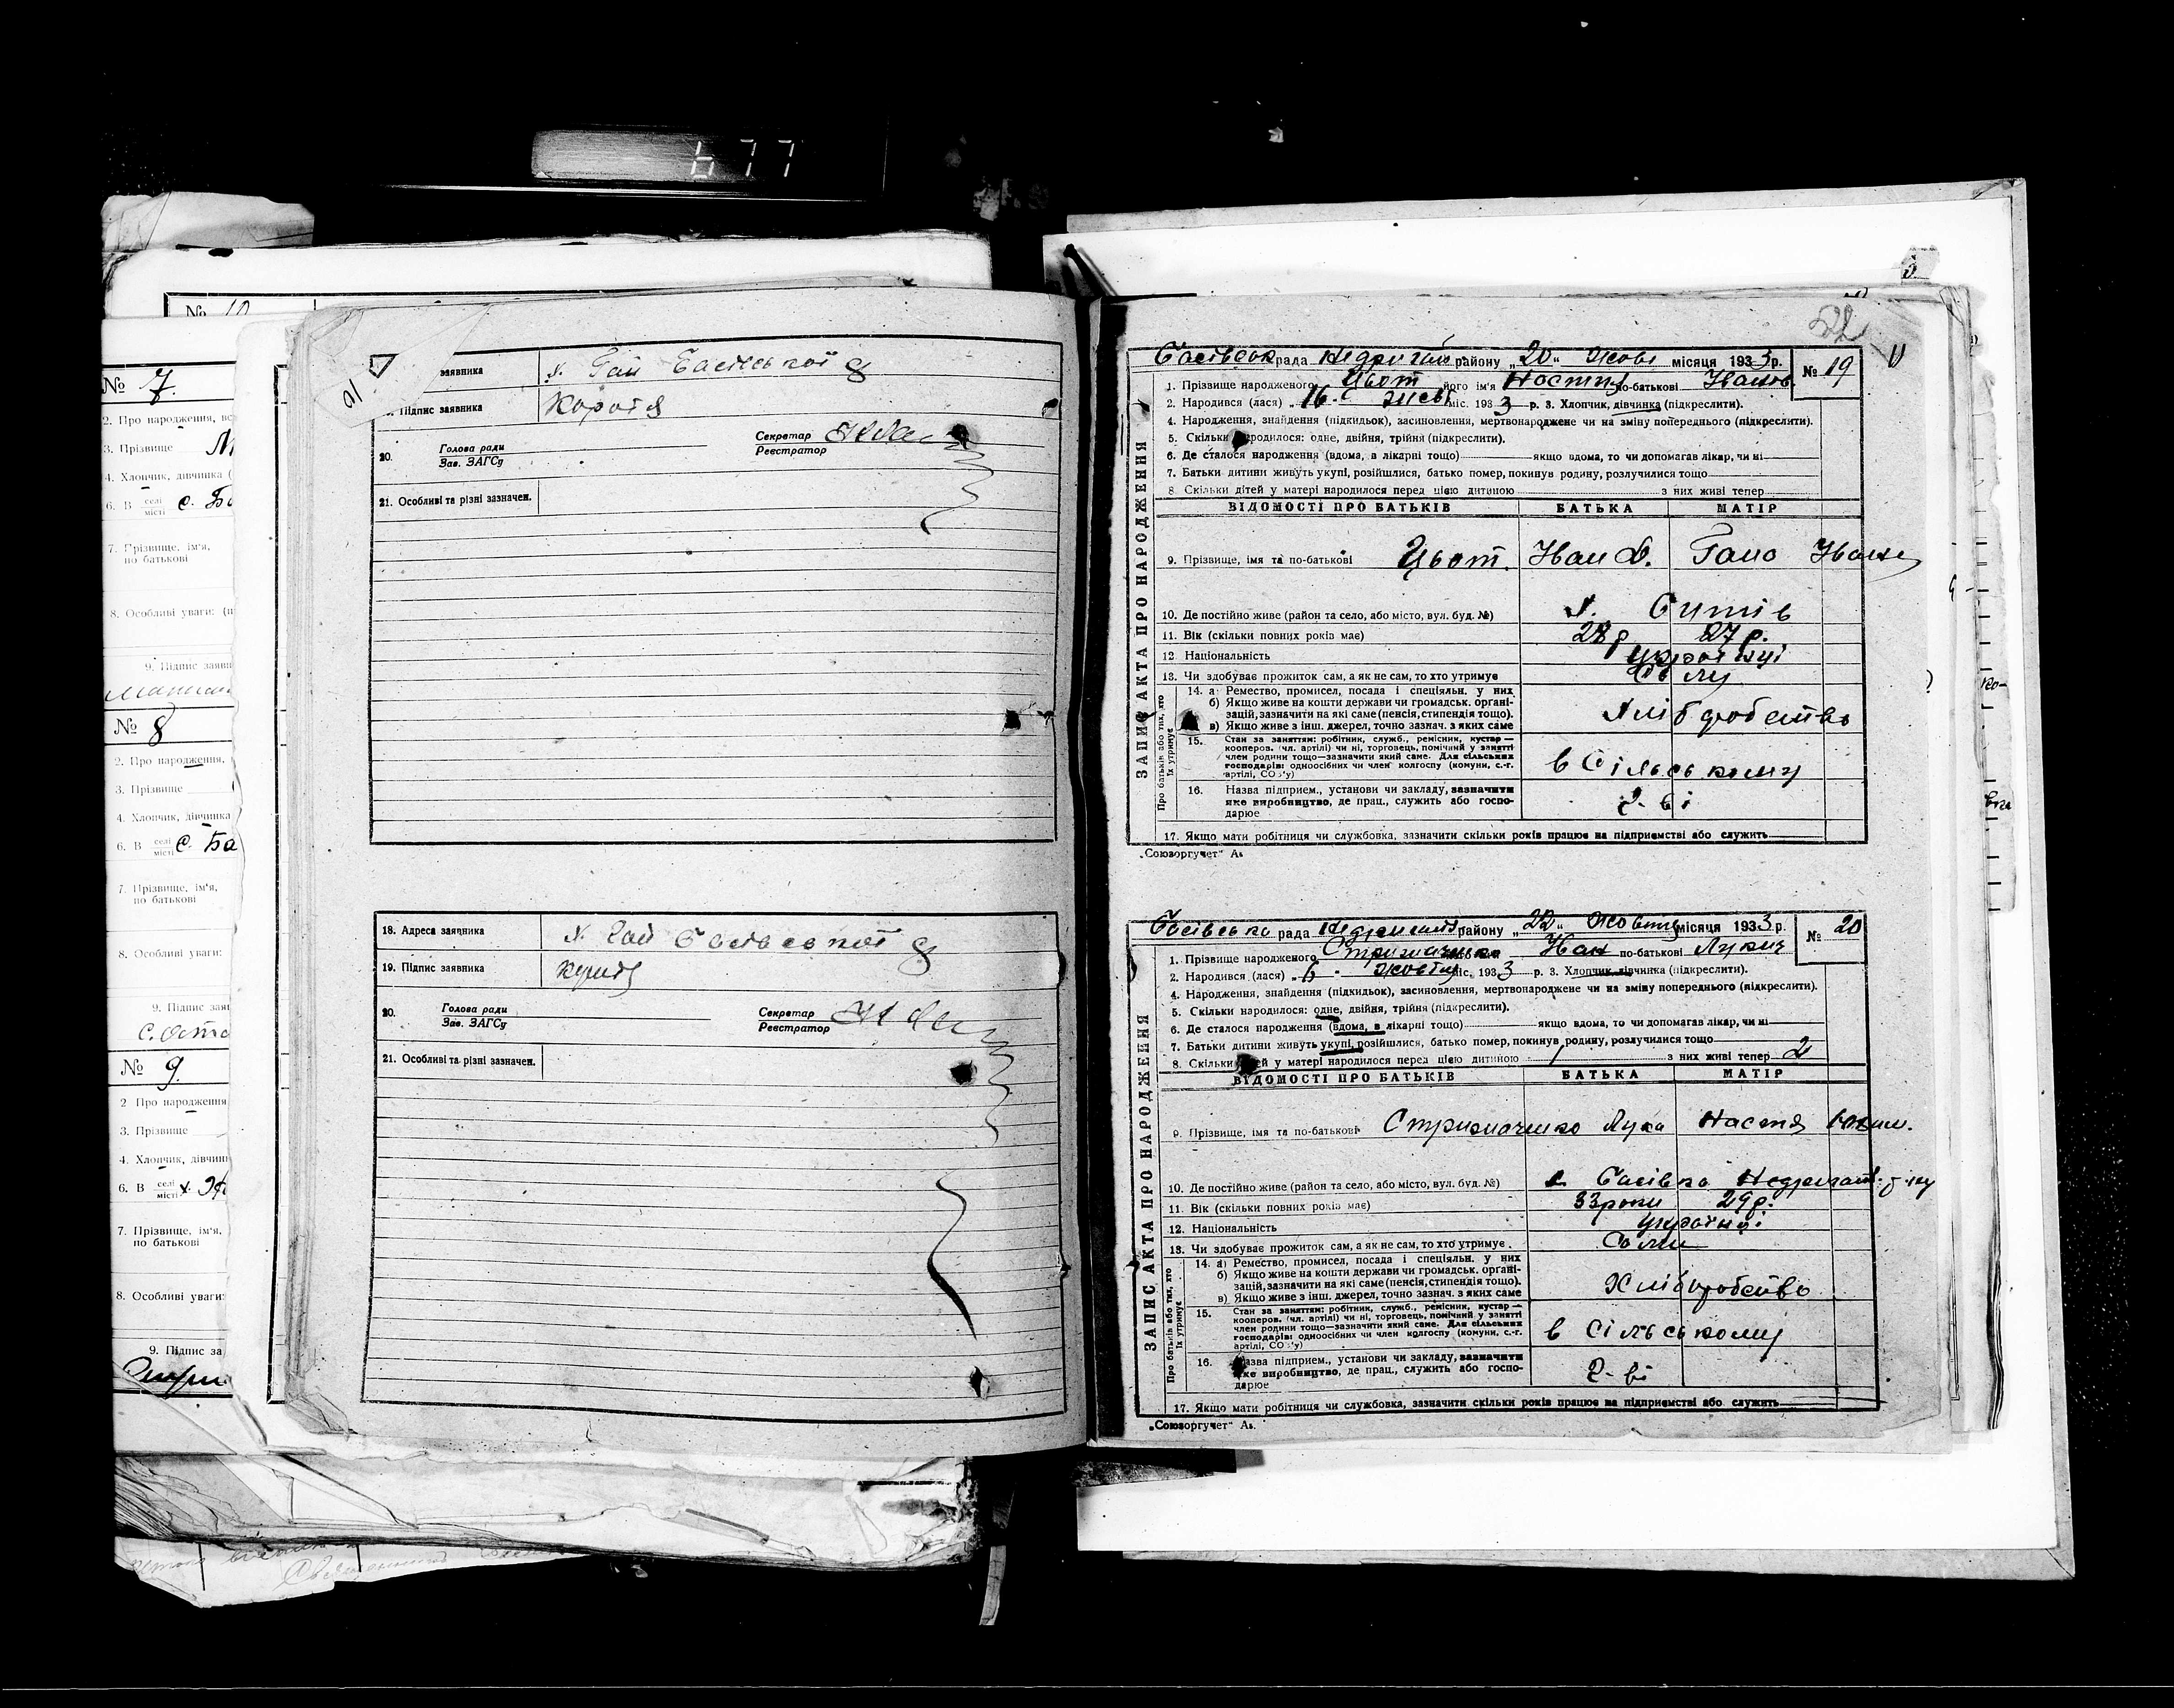 677
№ 10
№ 7.
2. Про народження, вс
3. Прізвище М
4. Хлопчик, дівчинка (
6. В селі місті с. Ба
7. Прізвище, ім'я, по батькові
8. Особливі уваги: (п
9. Підпис заяви
№ 8
2. Про народження,
3. Прізвище
4. Хлопчик, дівчинка
6. В селі місті с. Ба
7. Прізвище, ім'я, по батькові
8. Особливі уваги:
9. Підпис заяв
№ 9.
2 Про народження
3. Прізвище
4. Хлопчик, дівчинк
6. В селі місті х.
7. Прізвище, ім'я, по батькові
8. Особливі уваги:
9. Підпис за
заявника х. Гай Басівської
Підпис заявника
20. Голова ради Зав. ЗАГСу Секретар Реєстратор
21. Особливі та різні зазначен.
18. Адреса заявника х. Гай Басівської
19. Підпис заявника
20. Голова ради Зав. ЗАГСу Секретар Реєстратор
21. Особливі та різні зазначен.
22
ЗАПИС АКТА ПРО НАРОДЖЕННЯ
Басівськ рада Недригай району „20“ Жовт місяця 1933 р. № 19
1. Прізвище народженого Цьот його ім'я Настя по-батькові Иванов.
2. Народився (лася) „16 міс. 1933 р. 3. Хлопчик, дівчинка (підкреслити).
4. Народження, знайдення (підкидьок), засиновлення, мертвонароджене чи на зміну попереднього (підкреслити).
5. Скільки народилося: одне, двійня, трійня (підкреслити).
6. Де сталося народження (вдома, в лікарні тощо) якщо вдома, то чи допомагав лікар, чи ні
7. Батьки дитини живуть укупі, розійшлися, батько помер, покинув родину, розлучилися тощо
8. Скільки дітей у матері народилося перед цією дитиною з них живі тепер
ВІДОМОСТІ ПРО БАТЬКІВ БАТЬКА МАТІР
9. Прізвище, імя та по-батькові Цьот. Иван Ф. Гапо Иванів
10. Де постійно живе (район та село, або місто, вул. буд. №) х. Ситів
11. Вік (скільки повних років має) 28 р 27 р.
12. Національність українці
13. Чи здобуває прожиток сам, а як не сам, то хто утримує
Про батьків або тих, хто їх утримує
14. а) Ремество, промисел, посада і спеціяльн. у них
б) Якщо живе на кошти держави чи громадськ. органі-
зацій, зазначити на які саме (пенсія, стипендія тощо).
в) Якщо живе з інш. джерел, точно зазнач. з яких саме
Хліборобство
15. Стан за заняттям: робітник, служб., ремісник, кустар—
кооперов. (чл. артілі) чи ні, торговець, помічний у занятті
член родини тощо—зазначити який саме. Для сільських
господарів: одноосібних чи член колгоспу (комуни, с.-г.
артілі, СОЗ'у)
в Сільському
16. Назва підприєм., установи чи закладу, зазначити
яке виробництво, де прац., служить або госпо-
дарює
г-ві
17. Якщо мати робітниця чи службовка, зазначити скільки років працює на підприємстві або служить
„Союзоргучет“ А.
ЗАПИС АКТА ПРО НАРОДЖЕННЯ
Басівська рада району „22“ Жовтня місяця 1933 р. № 20
1. Прізвище народженого Стрижаченко Иван по-батькові Лукич
2. Народився (лася) „6 Жовтня міс. 1933 р. 3. Хлопчик, дівчинка (підкреслити).
4. Народження, знайдення (підкидьок), засиновлення, мертвонароджене чи на зміну попереднього (підкреслити).
5. Скільки народилося: одне, двійня, трійня (підкреслити).
6. Де сталося народження (вдома, в лікарні тощо) якщо вдома, то чи допомагав лікар, чи ні
7. Батьки дитини живуть укупі, розійшлися, батько помер, покинув родину, розлучилися тощо
8. Скільки дітей у матері народилося перед цією дитиною 1 з них живі тепер 2
ВІДОМОСТІ ПРО БАТЬКІВ БАТЬКА МАТІР
9. Прізвище, імя та по-батькові Стрижаченко Лука Настя
10. Де постійно живе (район та село, або місто, вул. буд. №) с. Басівка
11. Вік (скільки повних років має) 33 роки 29 р.
12. Національність українці
13. Чи здобуває прожиток сам, а як не сам, то хто утримує Сами
Про батьків або тих, хто їх утримує
14. а) Ремество, промисел, посада і спеціяльн. у них
б) Якщо живе на кошти держави чи громадськ. органі-
зацій, зазначити на які саме (пенсія, стипендія тощо).
в) Якщо живе з інш. джерел, точно зазнач. з яких саме
Хліборобство
15. Стан за заняттям: робітник, служб., ремісник, кустар—
кооперов. (чл. артілі) чи ні, торговець, помічний у занятті
член родини тощо—зазначити який саме. Для сільських
господарів: одноосібних чи член колгоспу (комуни, с.-г.
артілі, СОЗ'у)
в Сільському
16. Назва підприєм., установи чи закладу, зазначити
яке виробництво, де прац., служить або госпо-
дарює
г-ві
17. Якщо мати робітниця чи службовка, зазначити скільки років працює на підприємстві або служить
„Союзоргучет“ А.